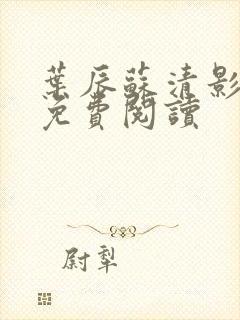 葉辰蘇清影
免費閱讀
尉犁